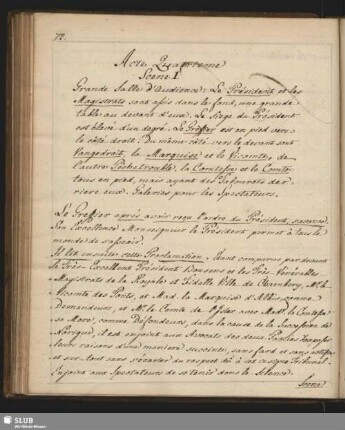 72.
Acte Quatrieme
Scene I.
Grande Salle d'Audience: Le Président et les
Magistrats sont assis dans le fond, une grande
table au devant d'eux. Le Siege du Président
est élevé d'un degré. Le Greffier est en pied vers
le côté droit. Du même côté vers le devant sont
Langedroit, la Marquise et le Vicomte, de
l'autre Pechetrouble, la Comtesse et le Comte
tous en pied, mais ayant des Tabourets der-
riere eux. Galeries pour les Spectateurs.
Le Greffier après avoir reçu l'ordre du Président
Son Excellence Monseigneur le Président permet à tout le
monde de s'asseoir.
Il lit ensuite cette Proclamation. Etant comparus par devant
le Très-Excellent Président et les Très-Vénérables
Magistrats de la Royale et Fidelle Ville de M. le
Vicomte des Ponts, et Mad. la Marquise comme
Demandeurs, et Mr. le Comte avec Mad. la Comtesse
sa Mere, comme Défendeurs, dans la cause de la Succession de
il est enjoint aux Avocats des deux Parties
leurs raisons d'une maniere succincte, sans fard et sans
et sur-tout sans s'écarter du respect dû à cet Tribunal.
Enjoint aux Spectateurs de se tenir dans le Silence.
Scene
SLUB
Wir führen Wissen.